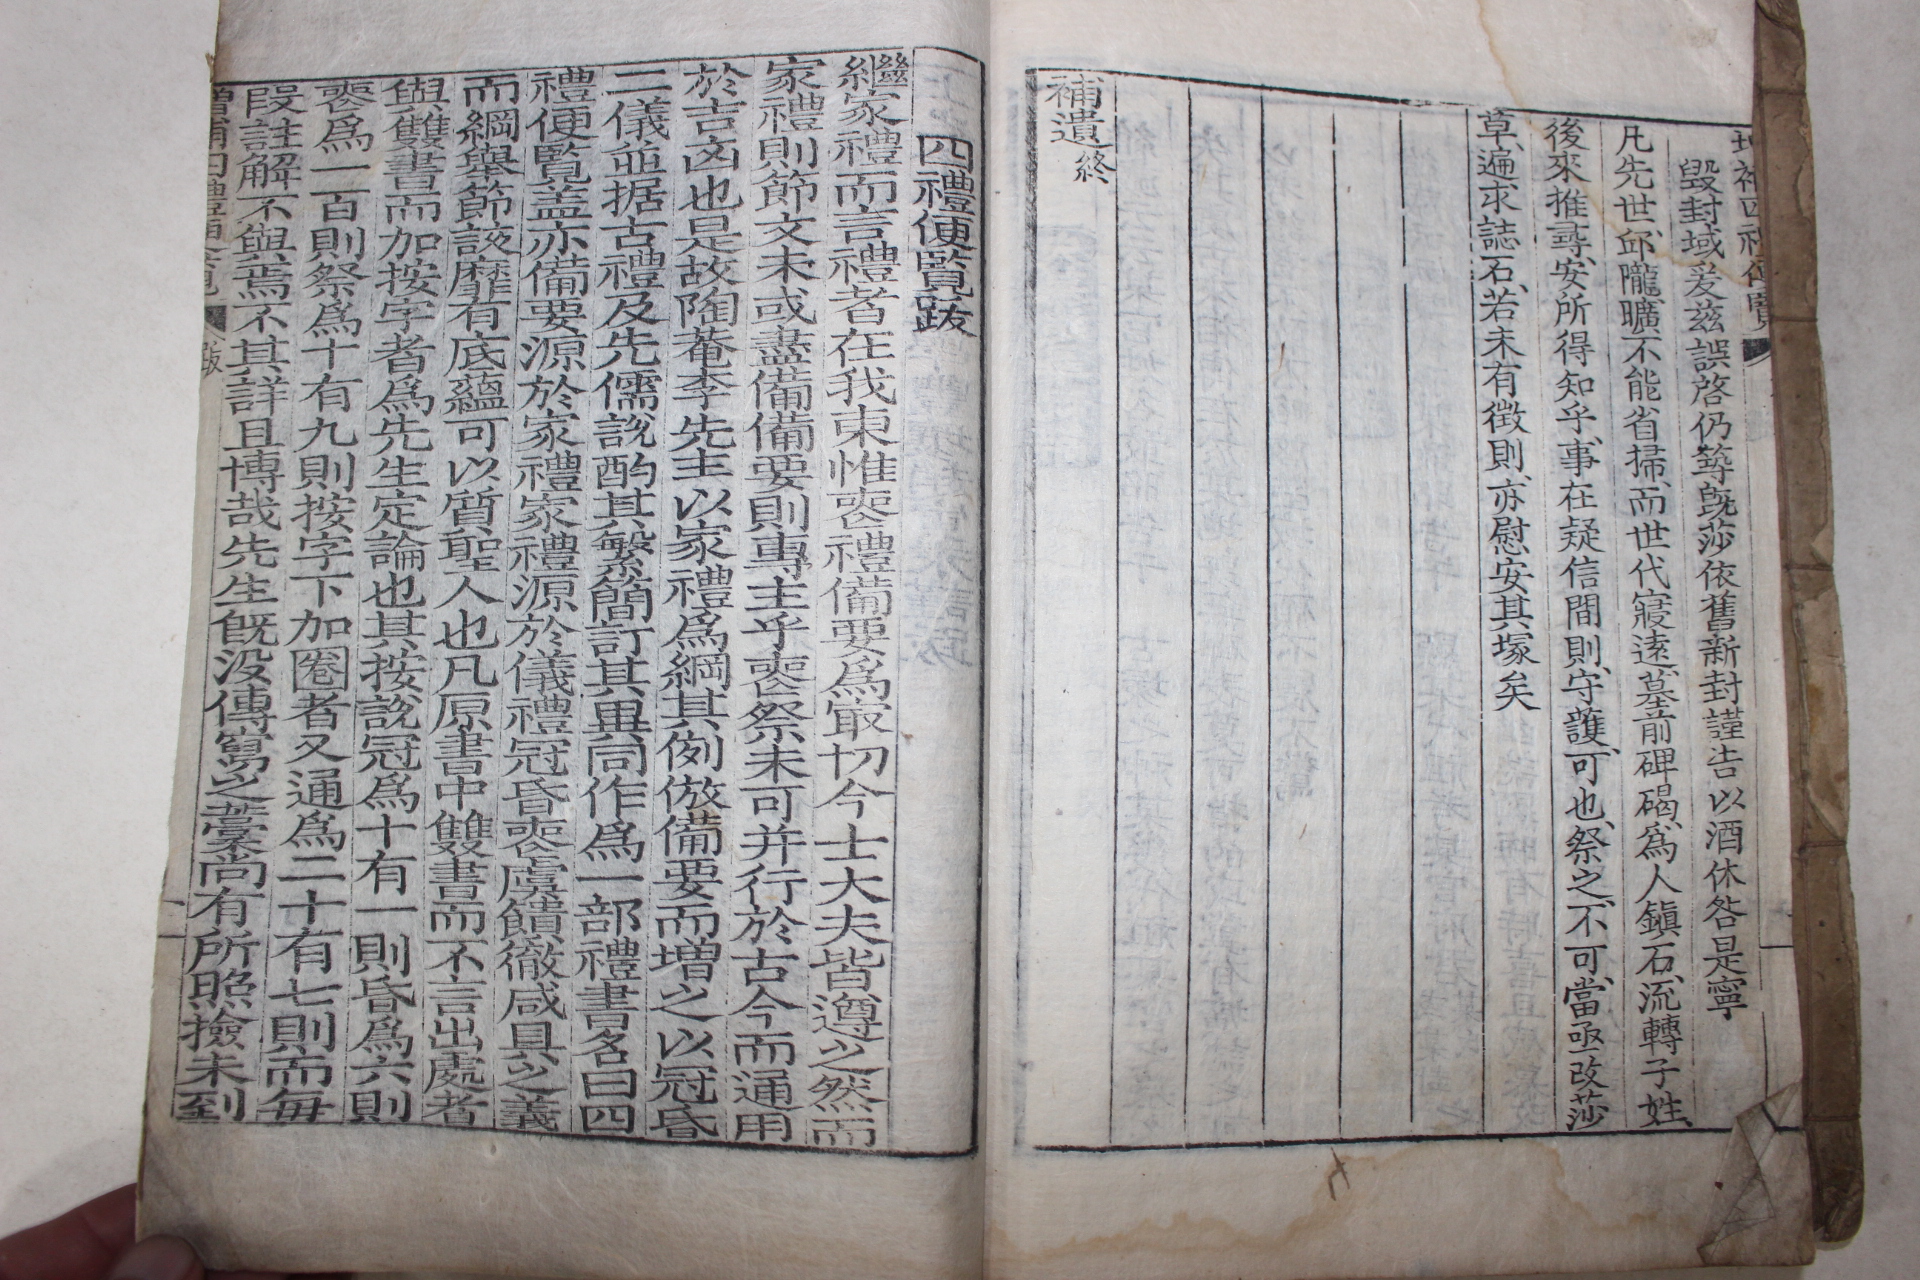 毀封域爰茲誤啓仍筭旣莎依舊新封謹告以酒休咎是寧
凡先世邱隴曠不能省掃而世代寢遠墓前碑碣爲人鎭石流轉子姓
後來推尋安所得知乎事在疑信間則守護可也祭之不可當亟改莎
草遍求誌石若未有徵則亦慰安其塚矣
補遺終
四禮便覽跋
繼家禮而言禮者在我東惟喪禮備要爲冣切今士大夫皆遵之然而
家禮則節文未或盡備備要則專主乎喪祭未可并行於古今而通用
於吉凶也是故陶菴李先生以家禮爲綱其例倣備要而增之以冠昏
二儀並据古禮及先儒說酌其繁簡訂其異同作爲一部禮書名曰四
禮便覽盖亦備要源於家禮家禮源於儀禮冠昏喪虞饋徹咸具之義
而綱擧節該靡有底蘊可以質聖人也凡原書中雙書而不言出處者
與雙書而加按字者爲先生定論也其按說冠爲十有一則昏爲六則
喪爲一百則祭爲十有九則按字下加圈者又通爲二十有七則而每
段註解不與焉不其詳且博哉先生旣沒傳寫之藁尙有所照撿未到
增補四禮便覽
跋